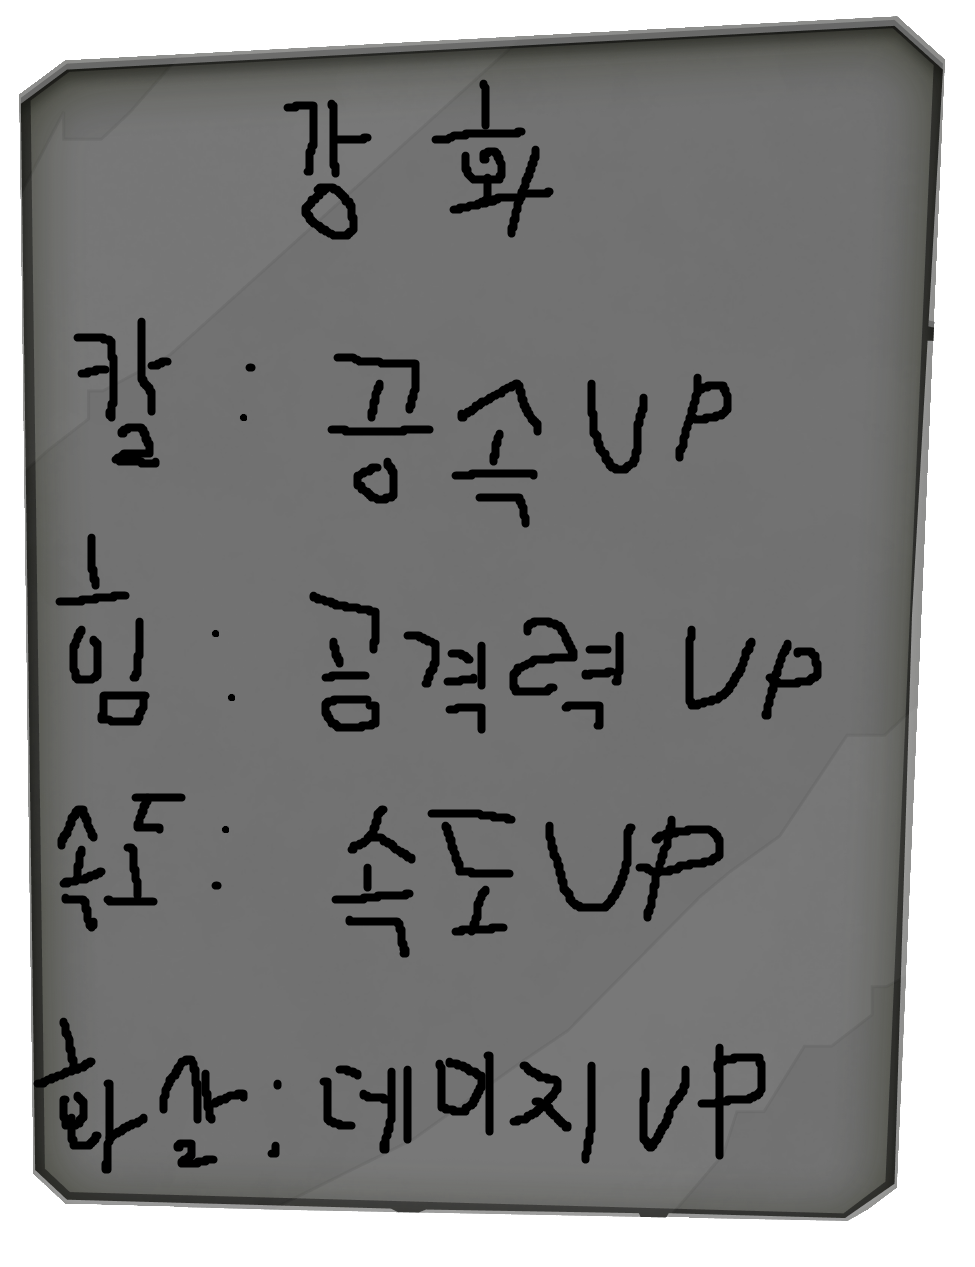 강화
칼 : 공속 UP
힘 : 공격력 UP
속도 : 속도 UP
화살 : 데미지 UP